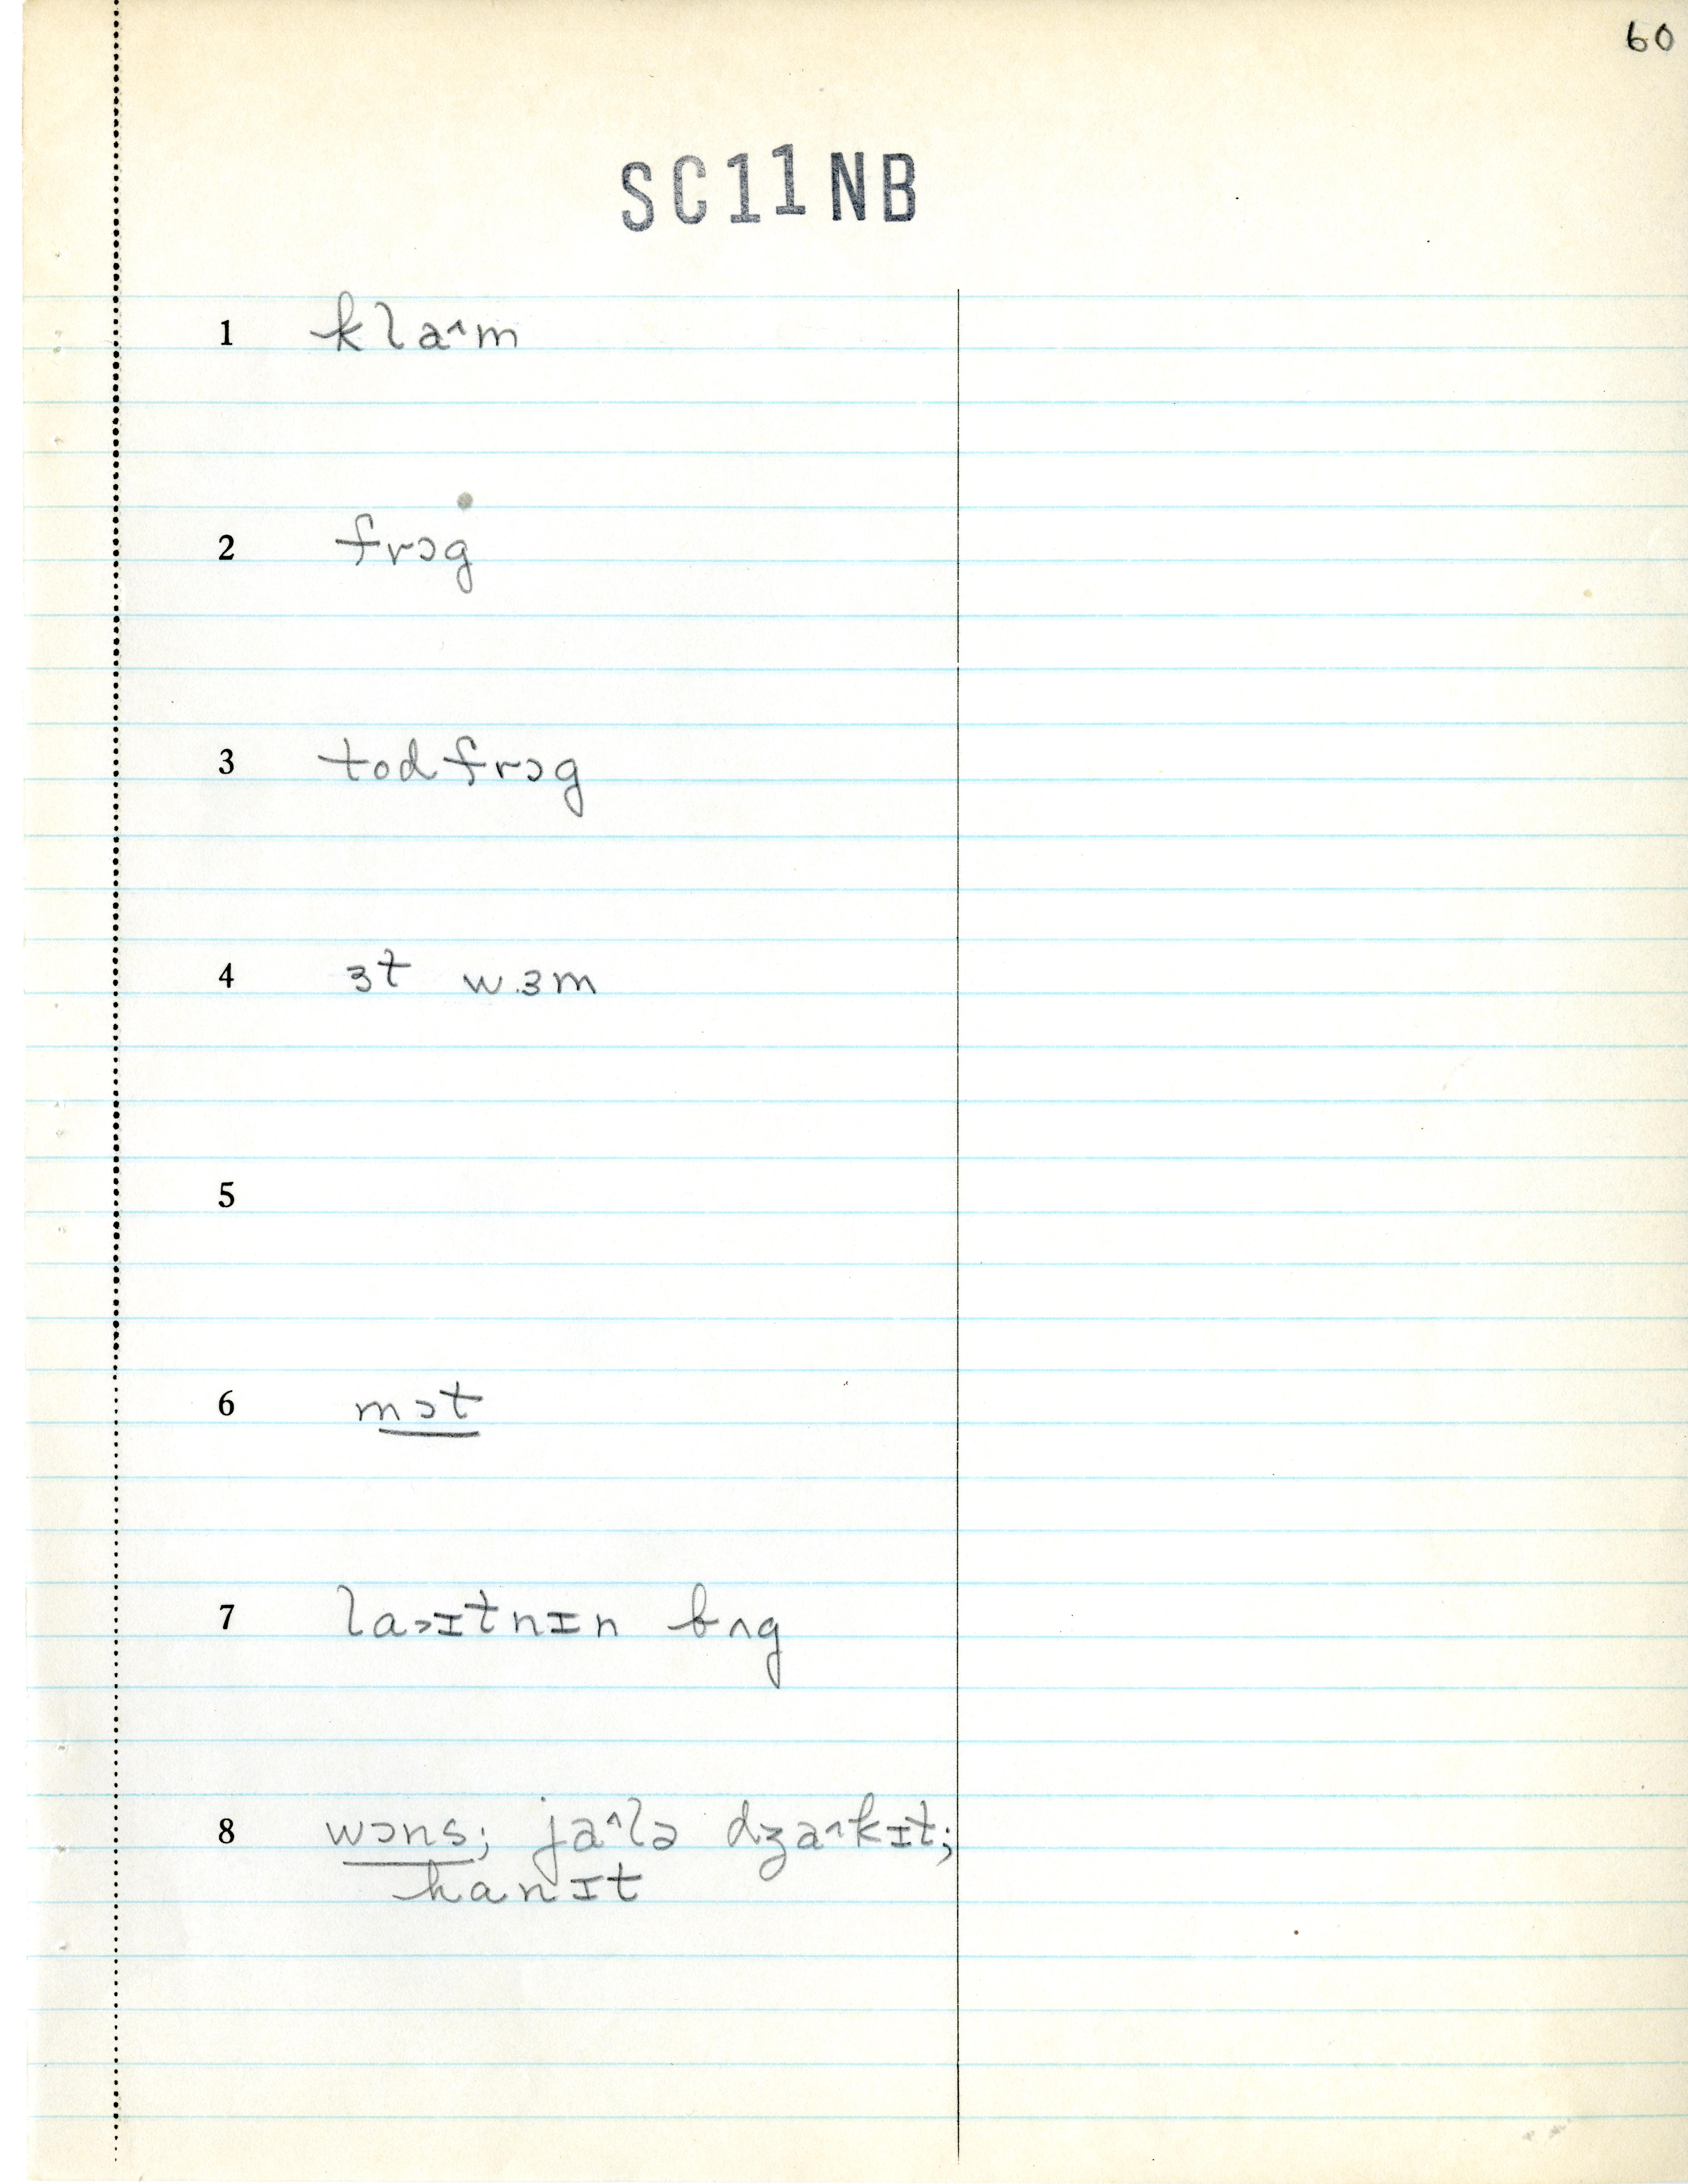 60
SC11NB
1 kla˄m
2 frɔg
3 todfrɔg
4 ɜt wɜm
5
6 mɔt
7 la˃ɪtnɪn bʌg
8 wɔns; ja˄lə dʒa˄kɪt;
hanɪt